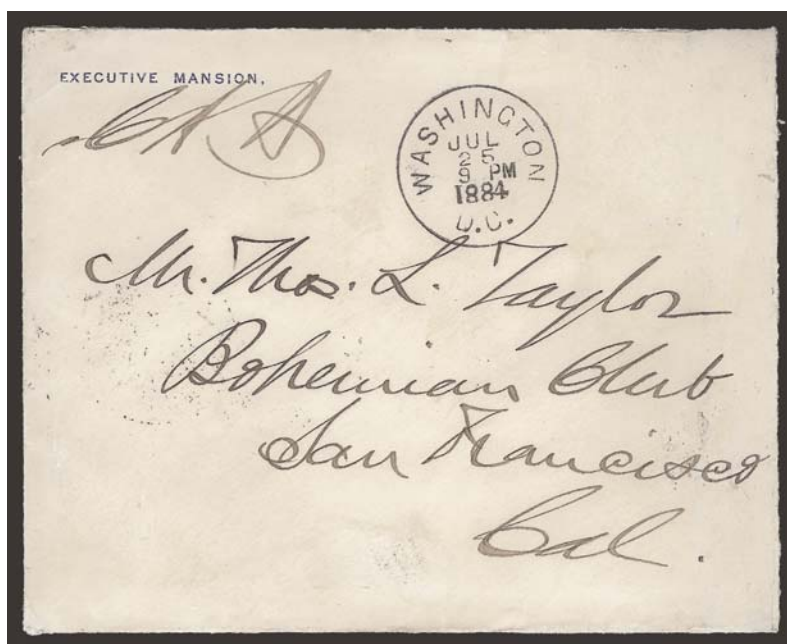 EXECUTIVE MANSION.
WASHINGTON
JUL
25
9 PM
1884
D.C.
Mr. Thos. L. Taylor
Bohemian Club
San Francisco
Cal.